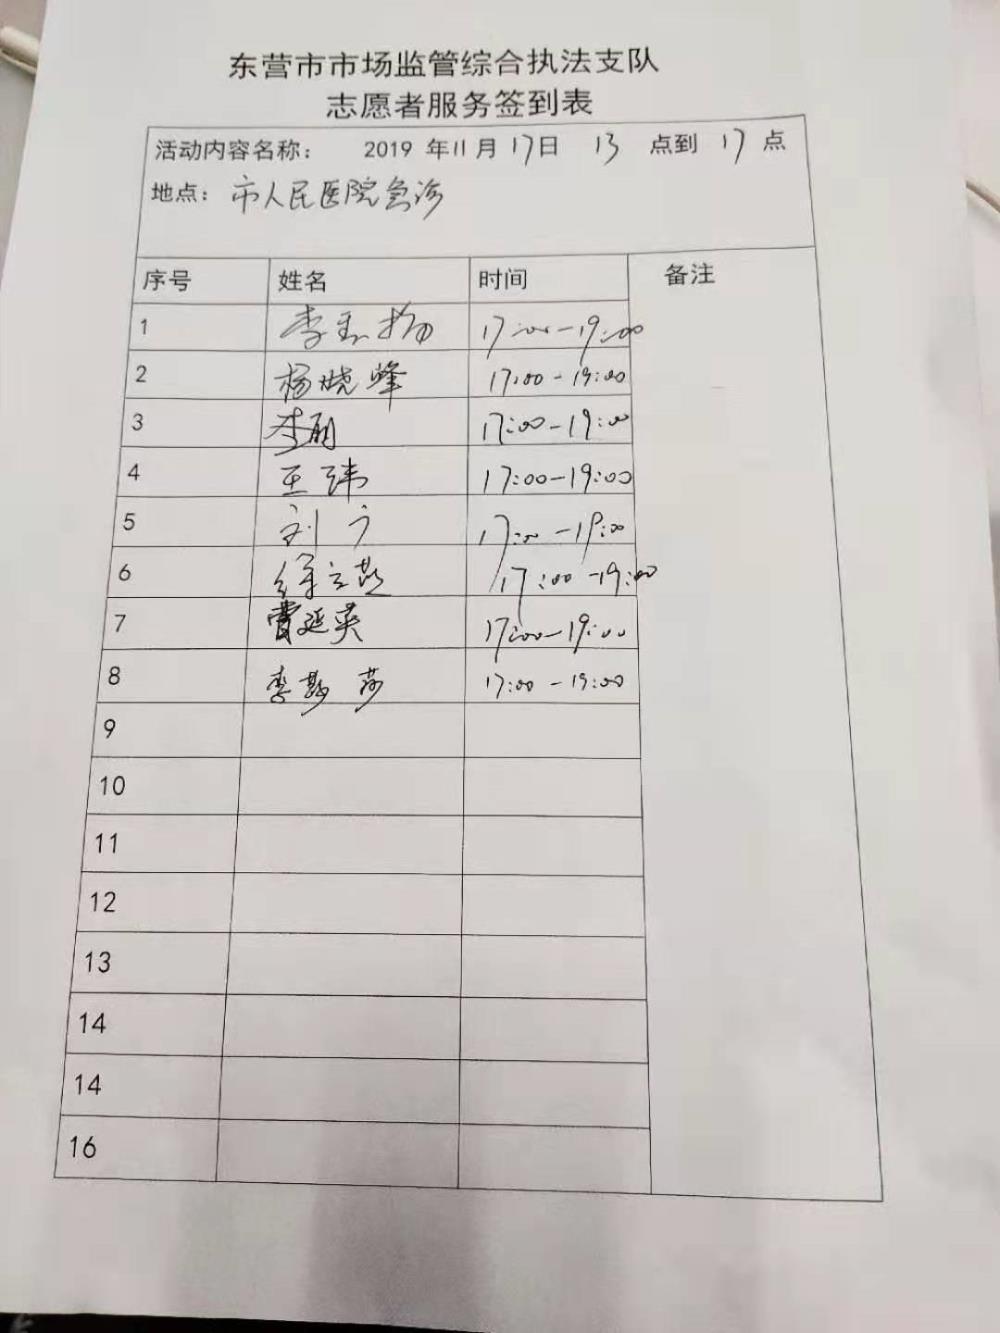 东营市市场监管综合执法支队
志愿者服务签到表
活动内容名称： 2019 年11月17日 13 点到 17 点
地点：市人民医院急诊
序号 姓名 时间 备注
1 李 扬 17:00-19:00
2 杨晓峰 17:00-19:00
3 李丽 17:00-19:00
4 王玮 17:00-19:00
5 刘 17:00-19:00
6 徐立燕 17:00-19:00
7 曹延英 17:00-19:00
8 李 莎 17:00-19:00
9
10
11
12
13
14
14
16